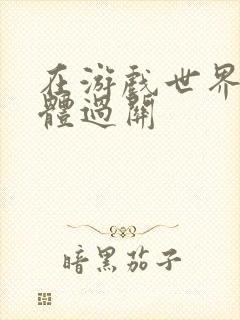 在游戏世界
體過關
暗黑茄子